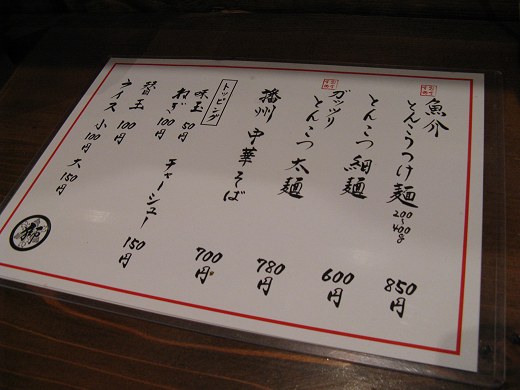 魚介
とんこつつけ麺 200~400g 850円
とんこつ細麺 600円
ガッツリ
とんこつ太麺 780円
播州中華そば 700円
トッピング
味玉 50円
ねぎ 100円
チャーシュー 150円
替玉 100円
ライス 小100円 大150円